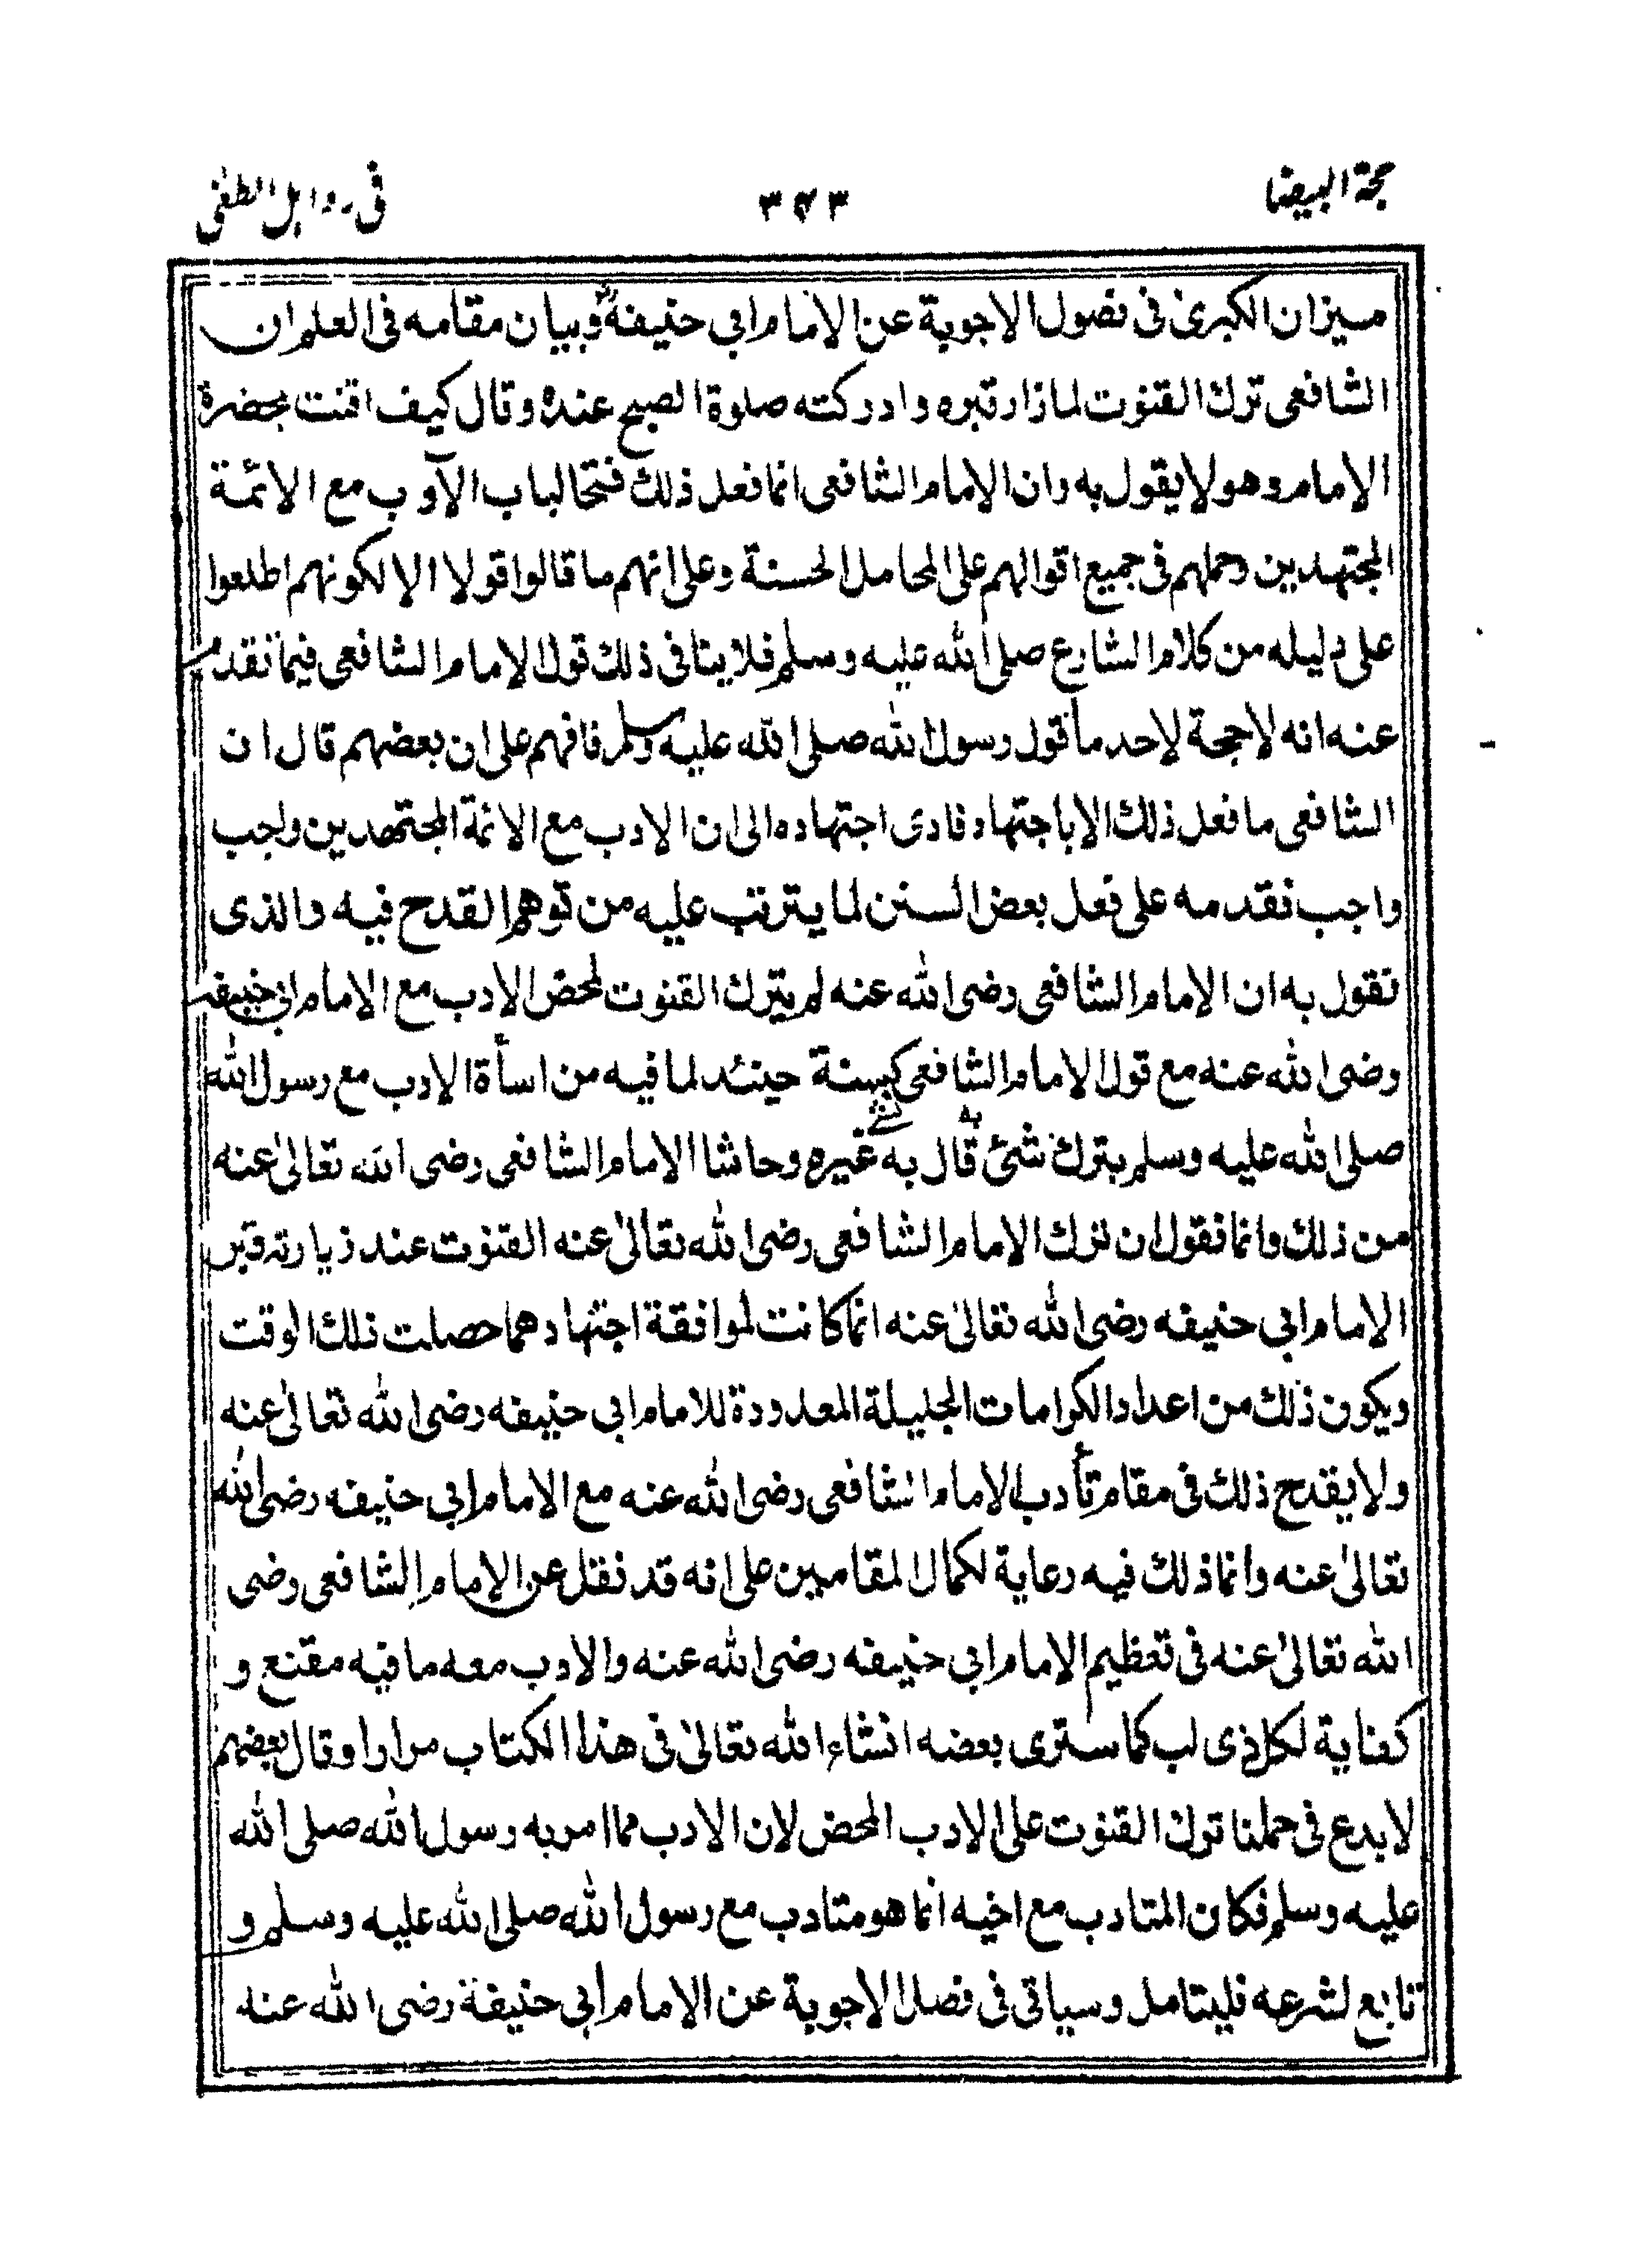 حجة البيضا ٣٧٣ فى رد اهل الطغى
ميزان الكبرى فى فصول الاجوبة عن الامام ابى حنيفةؒ وبيان مقامه فى العلم ان
الشافعى ترك القنوت لما زار قبره وادركته صلوة الصبح عنده وقال كيف اقنت بحضرة
الامام وهو لا يقول به وان الامام الشافعى انما فعل ذلك فتحا لباب الآوب مع الائمة
المجتهدين وحملهم فى جميع اقوالهم على المحامل الحسنة وعلى انهم ما قالوا قولا الا لكونهم اطلعوا
على دليله من كلام الشارع صلى الله عليه وسلم فلا ينافى ذلك قول الامام الشافعى فيما تقدم
عنه انه لا حجة لاحد مأ قول رسول الله صلى الله عليه وسلم فافهم على ان بعضهم قال ان
الشافعى ما فعل ذلك الا باجتهاد فادى اجتهاده الى ان الادب مع الائمة المجتهدين واجب
واجب فقدمه على فعل بعض السنن لما يترتب عليه من توهم القدح فيه والذى
نقول به ان الامام الشافعى رضى الله عنه لم يترك القنوت لمحض الادب مع الامام ابى حنيفه
رضى الله عنه مع قول الامام الشافعى كبسنة حينئد لما فيه من اسأة الادب مع رسول الله
صلى الله عليه وسلم بترك شئ قال به غيره وحاشا الامام الشافعى رضى الله تعالى عنه
من ذلك وانما فقول ان ترك الامام الشافعى رضى الله تعالى عنه القنوت عند زيارته قبر
الامام ابى حنيفه رضى الله تعالى عنه انما كانت لموافقة اجتهادهما حصلت ذلك الوقت
ويكون ذلك من اعداد الكرامات الجليلة المعدودة للامام ابى حنيفه رضى الله تعالى عنه
ولا يقدح ذلك فى مقام تأدب الامام الشافعى رضى الله عنه مع الامام ابى حنيفه رضى الله
تعالى عنه وانما ذلك فيه رعاية لكمال المقامين على انه قد نقل عن الامام الشافعى رضى
الله تعالى عنه فى تعظيم الامام ابى حنيفه رضى الله عنه والادب معه ما فيه مقنع و
كفاية لكل ذى لب كما سترى بعضه انشاء الله تعالى فى هذا الكتاب مرارا وقال بعضهم
لا بدع فى حملنا ترك القنوت على الادب المحض لان الادب مما امر به رسول الله صلى الله
عليه وسلم فكان المتادب مع اخيه انما هو متادب مع رسول الله صلى الله عليه وسلم و
تابع لشرعه فليتامل وسياتى فى فصل الاجوبة عن الامام ابى حنيفة رضى الله عنه